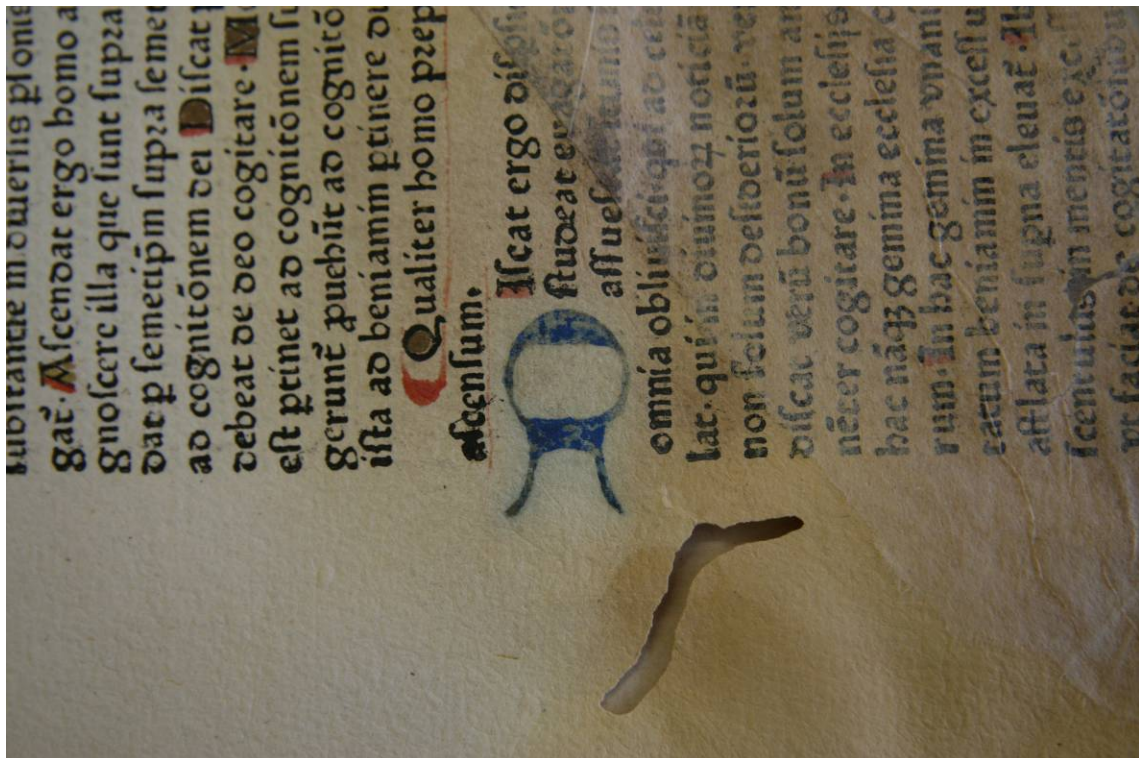 ſubſtantie in diuerſis pſonis
gat̃. Aſcendat ergo homo a
gnoſcere illa que ſunt ſupra
dat ꝑ ſemetip̃m ſupra ſemet
ad cognitōnem dei Diſcat
debeat de deo cogitare. M
eſt ꝑtinet ad cognitōnem ſu
gerunt̃ ꝓuehit ad cognitō
iſta ad beniamin ꝑtinere du
Qualiter homo prep
aſcenſum.
DIſcat ergo
ſtudeat
aſſueſ
omnia obliuiſci qui ad cele
lat. qui in diuinoꝝ noticiā
non ſolum deſideriorū ve
diſcat verū bonū ſolum am
cogitare. In eccleſijs
hac nāqꝫ gemina eccleſia c
rum. In hac gemina vnani
ratum beniamin in exceſſu
afflata in ſugna eleuat̃. Ib
in mentis exc
vt faciat de cogitatōnibu